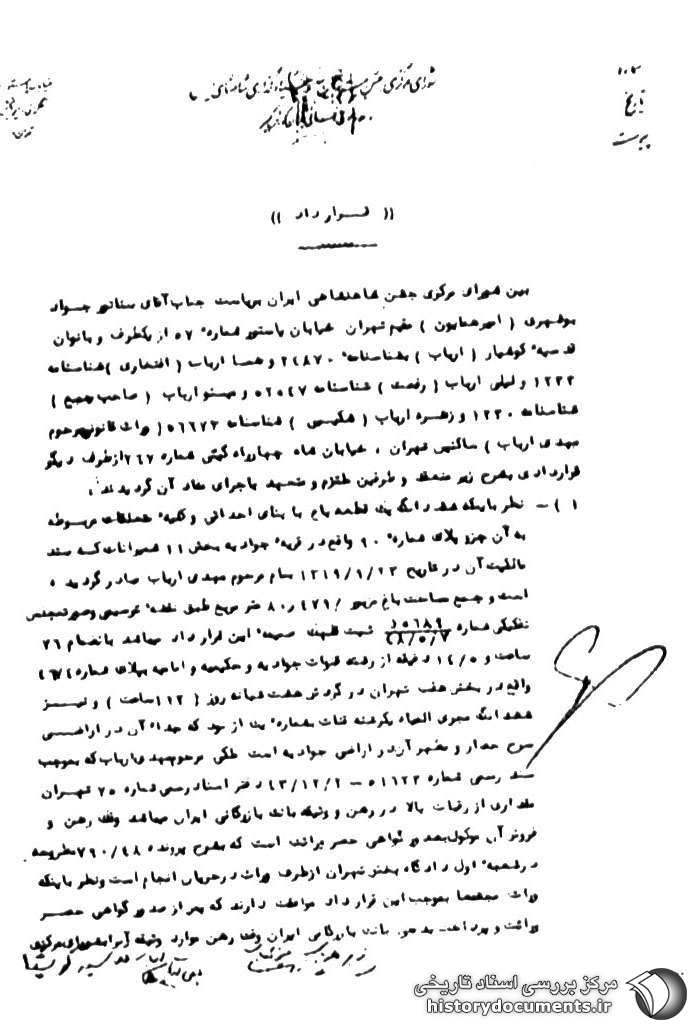 شماره
تاریخ
پیوست
شورای مرکزی جشن بنیادگذاری شاهنشاهی ایران
(( قرار داد ))
بین شورای مرکزی جشن شاهنشاهی ایران بریاست جناب آقای سناتور جواد
بوشهری ( امیرهمایون ) مقیم تهران خیابان پاستور شماره ۵۷ از یکطرف و بانوان
قدسیه کوشیار ( ارباب ) بشناسنامه ۲۴۸۷۰ و همسا ارباب ( افتخاری ) شناسنامه
۱۲۳۳ و لیلی ارباب ( رفعت ) شناسنامه ۵۲۰۴۷ و مینو ارباب ( صاحب جمع )
شناسنامه ۱۲۳۰ و زهره ارباب ( حکیمی ) شناسنامه ۵۶۶۷۳ ( وراث قانونی مرحوم
مهدی ارباب ) ساکنین تهران ، خیابان شاه چهارراه گیتی شماره ۲۶۷ از طرف دیگر
قراردادی بشرح زیر منعقد و طرفین ملتزم و متعهد باجرای مفاد آن گردیدند .
۱ ) - نظر باینکه ششدانگ یک قطعه باغ با بنای احداثی و کلیه متعلقات مربوطه
به آن جزو پلاک شماره ۹۰ واقع در قریه جوادیه بخش ۱۱ شمیرانات که سند
مالکیت آن در تاریخ ۱۳۱۹/۱/۲۳ بنام مرحوم مهدی ارباب صادر گردیده
است و جمع مساحت باغ مزبور ۸۰٫۴۷۹ متر مربع طبق نقشه ترسیمی و صورتمجلس
تفکیکی شماره ۱۵۶۸۹ ۴۸/۵/۷ ثبت قلهک ضمیمه این قرار داد میباشد بانضمام ۲۶
ساعت و ۱۴/۵ دقیقه از رشته قنوات جوادیه و حکیمیه و امامیه بپلاک شماره ۴۶/۷۴
واقع در بخش هفت تهران در گردش هشت شبانه روز ( ۱۱۲ ساعت ) و نیز
ششدانگ مجری المیاه یکرشته قنات بشماره یک از سود که چاه آن در اراضی
سرخ حصار و مظهر آن در اراضی جوادیه است ملکی مرحوم مهدی ارباب که بموجب
سند رسمی شماره ۵۱۶۲۲ - ۴۳/۱۲/۲ دفتر اسناد رسمی شماره ۲۵ تهران
مقداری از رقبات بالا در رهن و وثیقه بانک بازرگانی ایران میباشد و فک رهن و
فروش آن موکول بصدور گواهی حصر وراثت است که بشرح پرونده ۷۹۰/۴۸ مطروحه
در شعبه اول دادگاه بخش تهران از طرف وراث در جریان انجام است و نظر باینکه
وراث مجتمعا بموجب این قرار داد موافقت دارند که پس از صدور گواهی حصر
وراثت و پرداخت بدهی بانک بازرگانی ایران و فک رهن موارد وثیقه آنرا بشورای مرکزی
مرکز بررسی اسناد تاریخی
historydocuments.ir